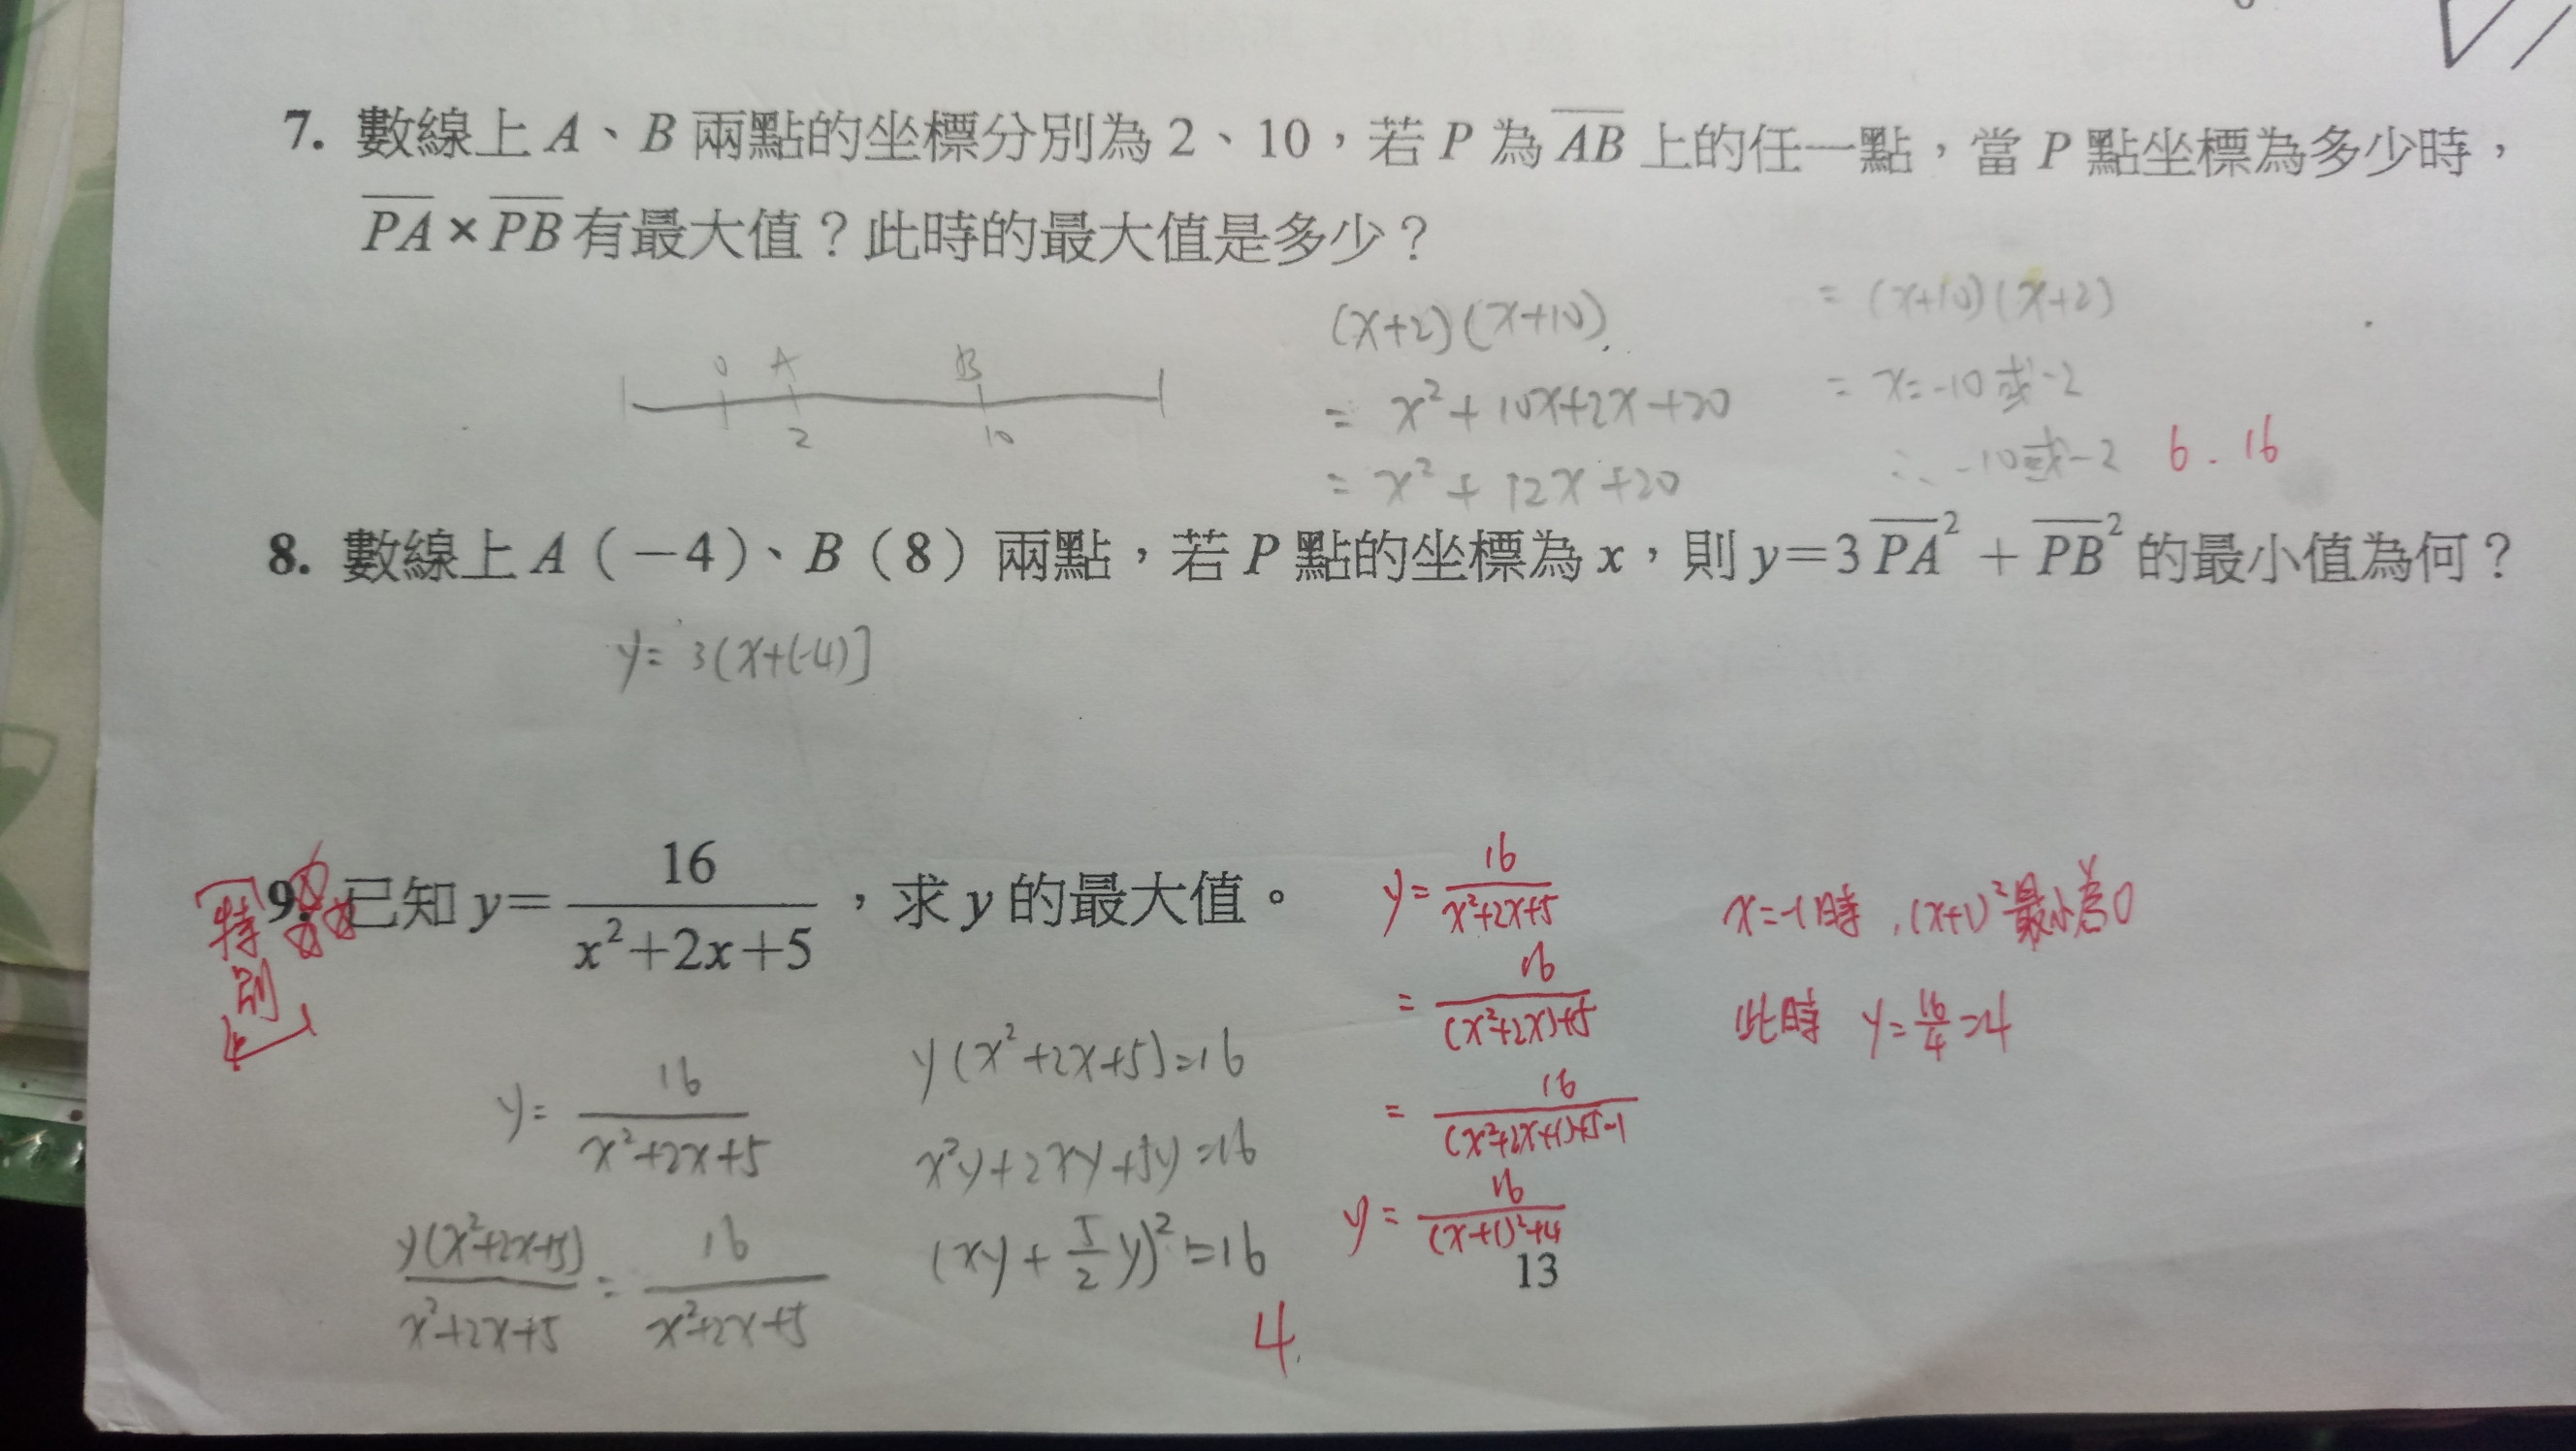 7. 數線上 A、B 兩點的坐標分別為 2、10，若 P 為 AB 上的任一點，當 P 點坐標為多少時，
PA × PB 有最大值？此時的最大值是多少？
0 A B
2 10
(x+2)(x+10)
= x²+10x+2x+20
= x²+12x+20
= (x+10)(x+2)
= x=-10或-2
∴ -10或-2
6. 16
8. 數線上 A（－4）、B（8）兩點，若 P 點的坐標為 x，則 y＝3 PA²＋PB² 的最小值為何？
y= 3(x+(-4)]
特別
9. 已知 y＝16/(x²+2x+5)，求 y 的最大值。
y= 16/(x²+2x+5)
y(x²+2x+5)/(x²+2x+5) = 16/(x²+2x+5)
y(x²+2x+5)=16
x²y+2xy+5y=16
(xy+5/2y)²=16
4.
y= 16/(x²+2x+5)
= 16/((x²+2x)+5)
= 16/((x²+2x+1)+5-1)
y= 16/((x+1)²+4)
x=-1時，(x+1)²最小為0
此時 y=16/4=4
13